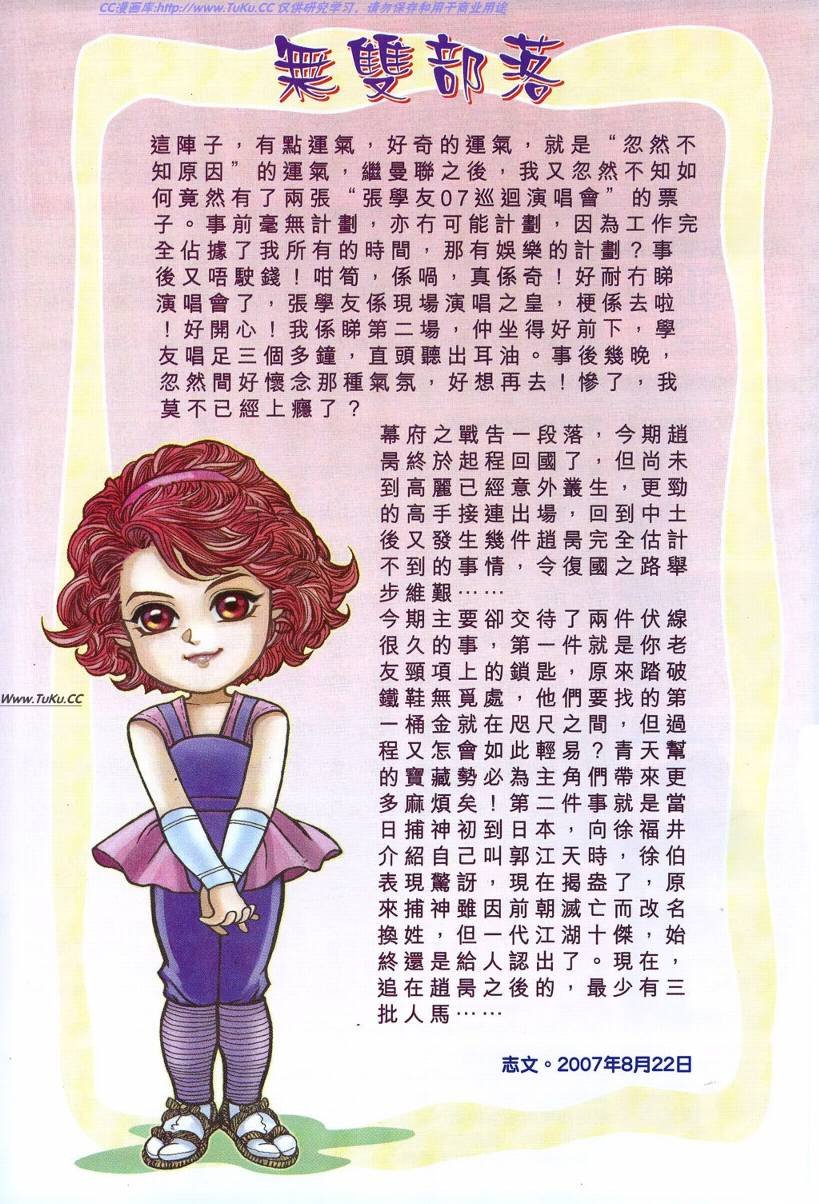 CC漫画库:http://www.TuKu.CC 仅供研究学习，请勿保存和用于商业用途
無雙部落
這陣子，有點運氣，好奇的運氣，就是“忽然不
知原因”的運氣，繼曼聯之後，我又忽然不知如
何竟然有了兩張“張學友07巡迴演唱會”的票
子。事前毫無計劃，亦冇可能計劃，因為工作完
全佔據了我所有的時間，那有娛樂的計劃？事
後又唔駛錢！咁筍，係喎，真係奇！好耐冇睇
演唱會了，張學友係現場演唱之皇，梗係去啦
！好開心！我係睇第二場，仲坐得好前下，學
友唱足三個多鐘，直頭聽出耳油。事後幾晚，
忽然間好懷念那種氣氛，好想再去！慘了，我
莫不已經上癮了？
幕府之戰告一段落，今期趙
昺終於起程回國了，但尚未
到高麗已經意外叢生，更勁
的高手接連出場，回到中土
後又發生幾件趙昺完全估計
不到的事情，令復國之路舉
步維艱……
今期主要卻交待了兩件伏線
很久的事，第一件就是你老
友頸項上的鎖匙，原來踏破
鐵鞋無覓處，他們要找的第
一桶金就在咫尺之間，但過
程又怎會如此輕易？青天幫
的寶藏勢必為主角們帶來更
多麻煩矣！第二件事就是當
日捕神初到日本，向徐福井
介紹自己叫郭江天時，徐伯
表現驚訝，現在揭盅了，原
來捕神雖因前朝滅亡而改名
換姓，但一代江湖十傑，始
終還是給人認出了。現在，
追在趙昺之後的，最少有三
批人馬……
Www.TuKu.CC
志文。2007年8月22日